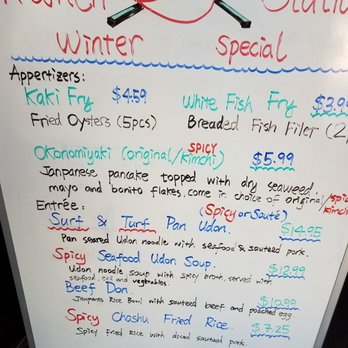 Station
Winter Special
Appertizers:
Kaki Fry $4.59 White Fish Fry $3.9
Fried Oysters (5pcs) Breaded Fish Filer (2
Okonomiyaki (original/SPICY kimchi) $5.99
Janparese pancake topped with dry seaweed.
mayo and bonito flakes. come in choice of original/spicy kimchi
Entrée: (Spicy or Sauté)
Surf & Turf Pan Udon. $14.95
Pan seared Udon noodle with seafood & sauteed pork.
Spicy Seafood Udon Soup. $12.99
Udon noodle soup with spicy broth, served with
seafood, egg and vegetables.
Beef Don. $10.99
Janpares Rice Bowl with sauteed beef and poached egg
Spicy Chashu Fried Rice. $7.25
Spicy fried rice with diced sauteed pork